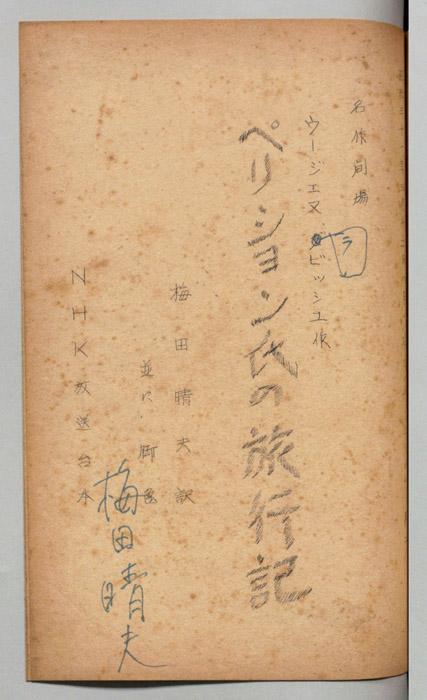 名作劇場
ウージェヌ・ラビッシュ作
ペリション氏の旅行記
梅田晴夫訳
並に・脚色
NHK放送台本
梅田晴夫